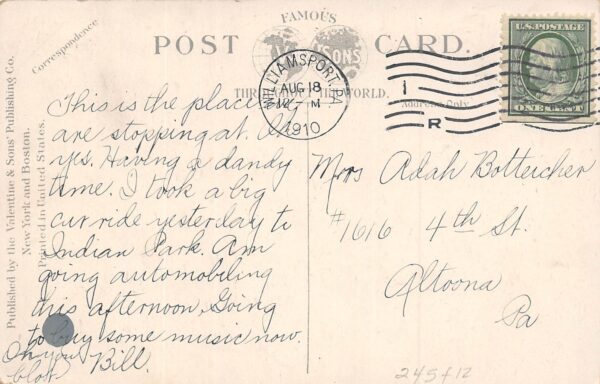 FAMOUS
POST CARD.
THROUGHOUT THE WORLD.
Correspondence
Address Only
U.S. POSTAGE
ONE CENT
WILLIAMSPORT, PA.
AUG 18
12 - M
1910
1
R
Published by the Valentine & Sons' Publishing Co.
New York and Boston.
Printed in United States.
This is the place
are stopping at. Oh
yes. Having a dandy
time. I took a big
car ride yesterday to
Indian Park. Am
going automobiling
this afternoon. Going
to buy some music now.
Oh you Bill.
Adah Bottercher
#1616 4th St.
Altoona
Pa
245f12